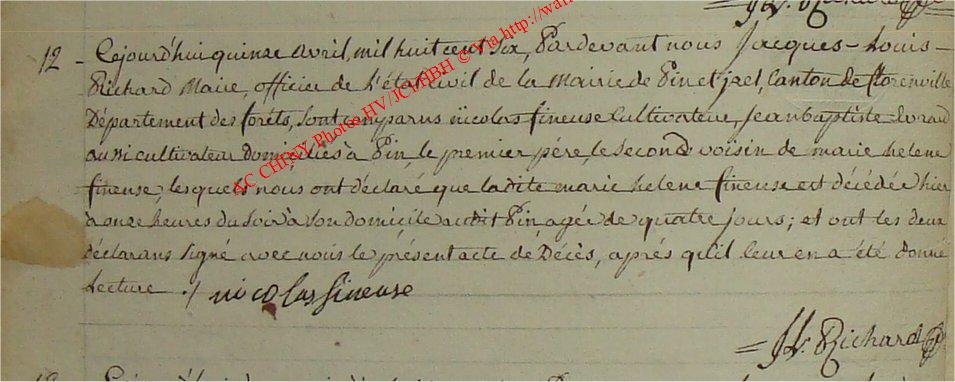 12 - Cejourd'huy quinze avril, mil huit cent six, Pardevant nous Jacques-Louis-
Richard Maire, officier de l'état civil de la Mairie de Pin et Izel, Canton de florenville
Département des forêts, sont comparus nicolas fineuse Cultivateur, Jean baptiste
aussi cultivateur domiciliés à Pin, le premier père, le second voisin de marie helene
fineuse, lesquels nous ont déclaré que ladite marie helene fineuse est décédée hier
à onze heures du soir à son domicile audit Pin agée de quatre jours; et ont les deux
déclarans signé avec nous le présent acte de Décès, après qu'il leur en a été donné
Lecture ./ nicolas fineuse
JL. Richard
CC CHINY Photos HV/JCL/HBH © Via http://wa